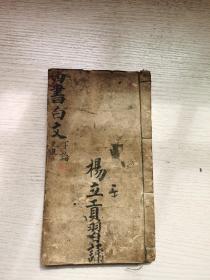 四書白文
下論
楊立貢習誦